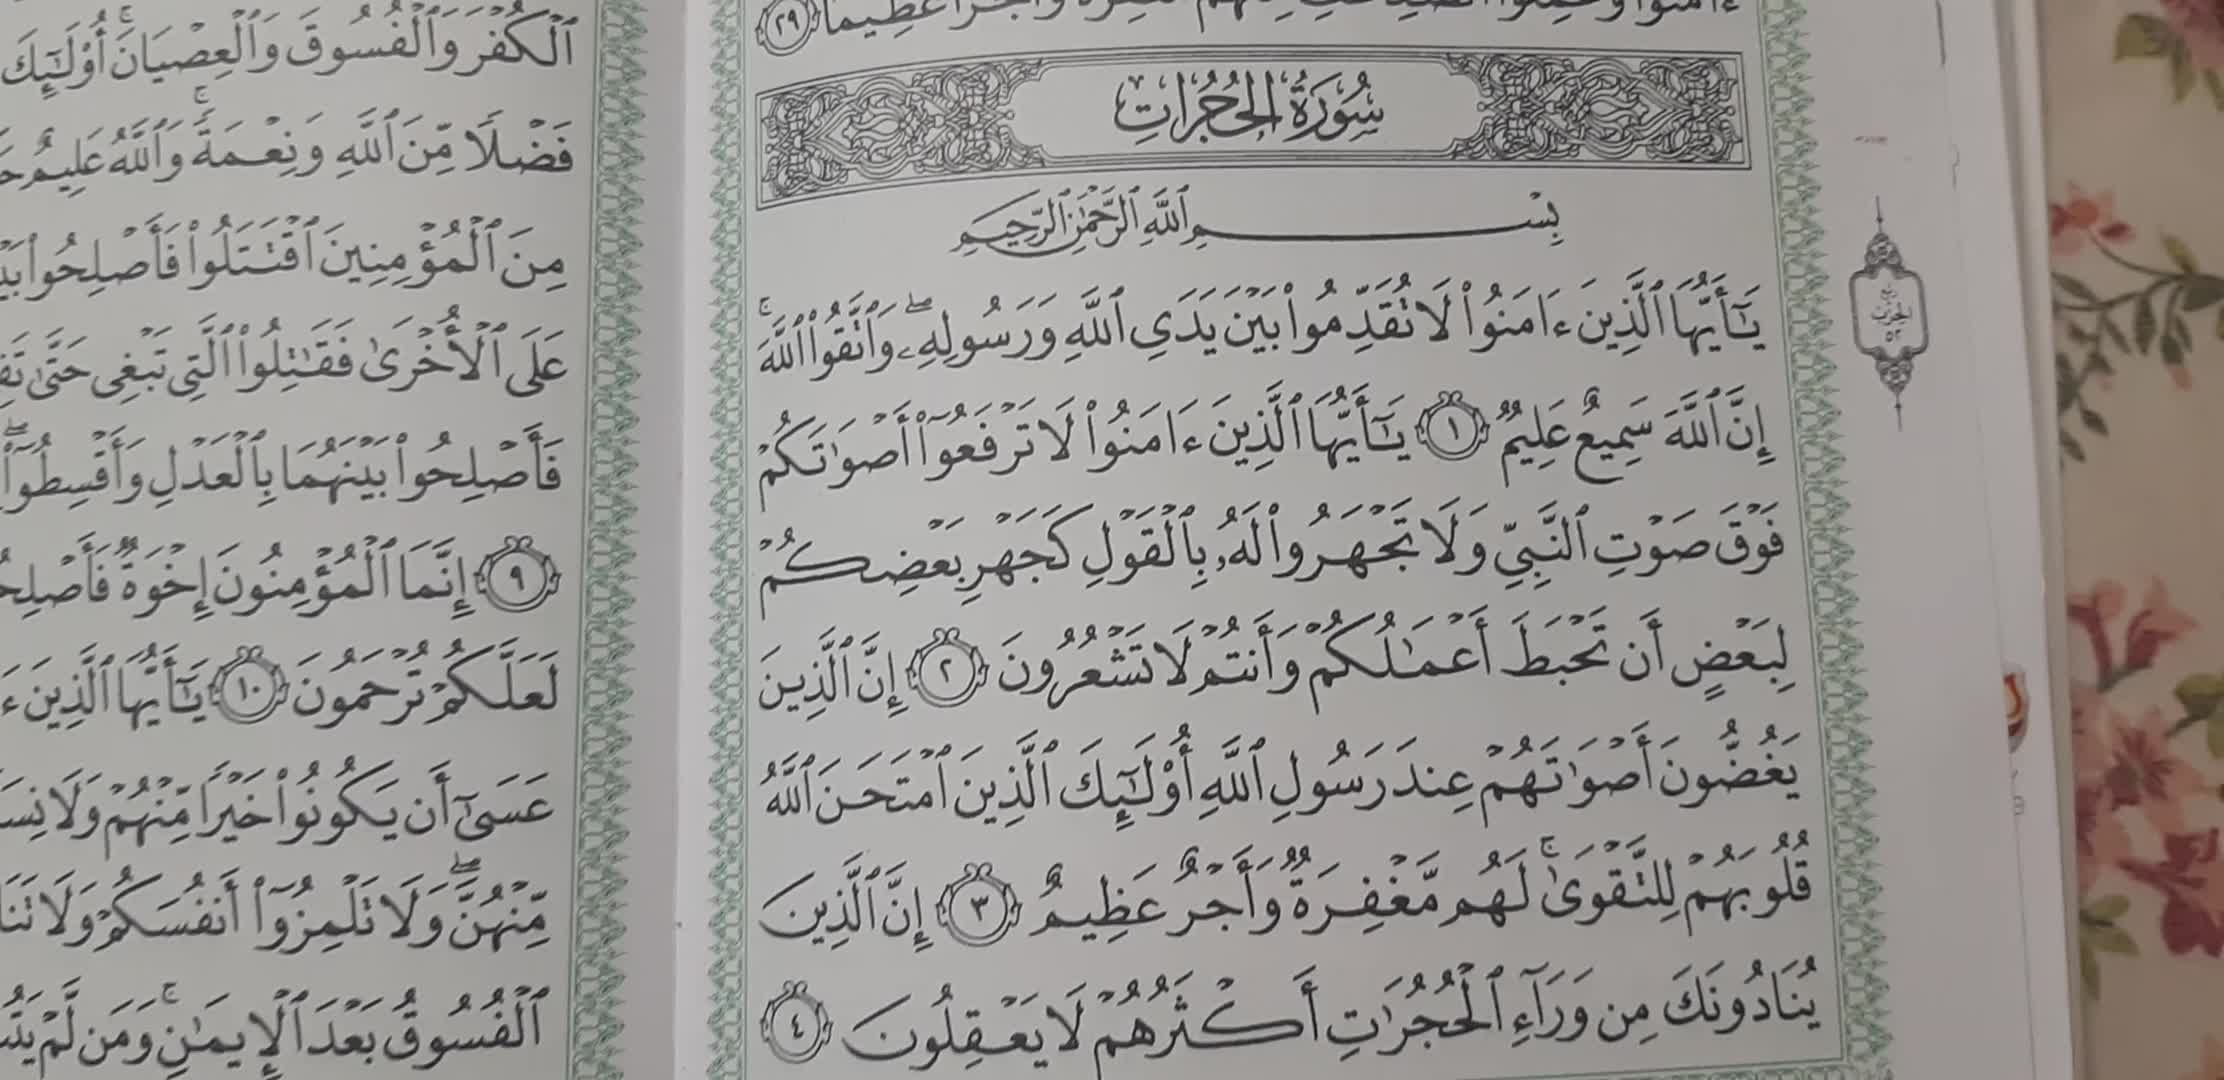 ءَامَنُوا۟ وَعَمِلُوا۟ وَأَجْرًا عَظِيمًا ٢٩
سُورَةُ الحُجُرَاتِ
بِسْمِ ٱللَّهِ ٱلرَّحْمَٰنِ ٱلرَّحِيمِ
يَٰٓأَيُّهَا ٱلَّذِينَ ءَامَنُوا۟ لَا تُقَدِّمُوا۟ بَيْنَ يَدَىِ ٱللَّهِ وَرَسُولِهِۦ ۖ وَٱتَّقُوا۟ ٱللَّهَ ۚ
إِنَّ ٱللَّهَ سَمِيعٌ عَلِيمٌ ١ يَٰٓأَيُّهَا ٱلَّذِينَ ءَامَنُوا۟ لَا تَرْفَعُوٓا۟ أَصْوَٰتَكُمْ
فَوْقَ صَوْتِ ٱلنَّبِىِّ وَلَا تَجْهَرُوا۟ لَهُۥ بِٱلْقَوْلِ كَجَهْرِ بَعْضِكُمْ
لِبَعْضٍ أَن تَحْبَطَ أَعْمَٰلُكُمْ وَأَنتُمْ لَا تَشْعُرُونَ ٢ إِنَّ ٱلَّذِينَ
يَغُضُّونَ أَصْوَٰتَهُمْ عِندَ رَسُولِ ٱللَّهِ أُو۟لَٰٓئِكَ ٱلَّذِينَ ٱمْتَحَنَ ٱللَّهُ
قُلُوبَهُمْ لِلتَّقْوَىٰ ۚ لَهُم مَّغْفِرَةٌ وَأَجْرٌ عَظِيمٌ ٣ إِنَّ ٱلَّذِينَ
يُنَادُونَكَ مِن وَرَآءِ ٱلْحُجُرَٰتِ أَكْثَرُهُمْ لَا يَعْقِلُونَ ٤
ٱلْكُفْرَ وَٱلْفُسُوقَ وَٱلْعِصْيَانَ ۚ أُو۟لَٰٓئِكَ
فَضْلًا مِّنَ ٱللَّهِ وَنِعْمَةً ۚ وَٱللَّهُ عَلِيمٌ
مِنَ ٱلْمُؤْمِنِينَ ٱقْتَتَلُوا۟ فَأَصْلِحُوا۟
عَلَى ٱلْأُخْرَىٰ فَقَٰتِلُوا۟ ٱلَّتِى تَبْغِى حَتَّىٰ
فَأَصْلِحُوا۟ بَيْنَهُمَا بِٱلْعَدْلِ وَأَقْسِطُوٓا۟ ۖ
٩ إِنَّمَا ٱلْمُؤْمِنُونَ إِخْوَةٌ
لَعَلَّكُمْ تُرْحَمُونَ ١٠ يَٰٓأَيُّهَا ٱلَّذِينَ
عَسَىٰٓ أَن يَكُونُوا۟ خَيْرًا مِّنْهُمْ وَلَا
مِّنْهُنَّ ۖ وَلَا تَلْمِزُوٓا۟ أَنفُسَكُمْ وَلَا
ٱلْفُسُوقُ بَعْدَ ٱلْإِيمَٰنِ ۚ وَمَن لَّمْ